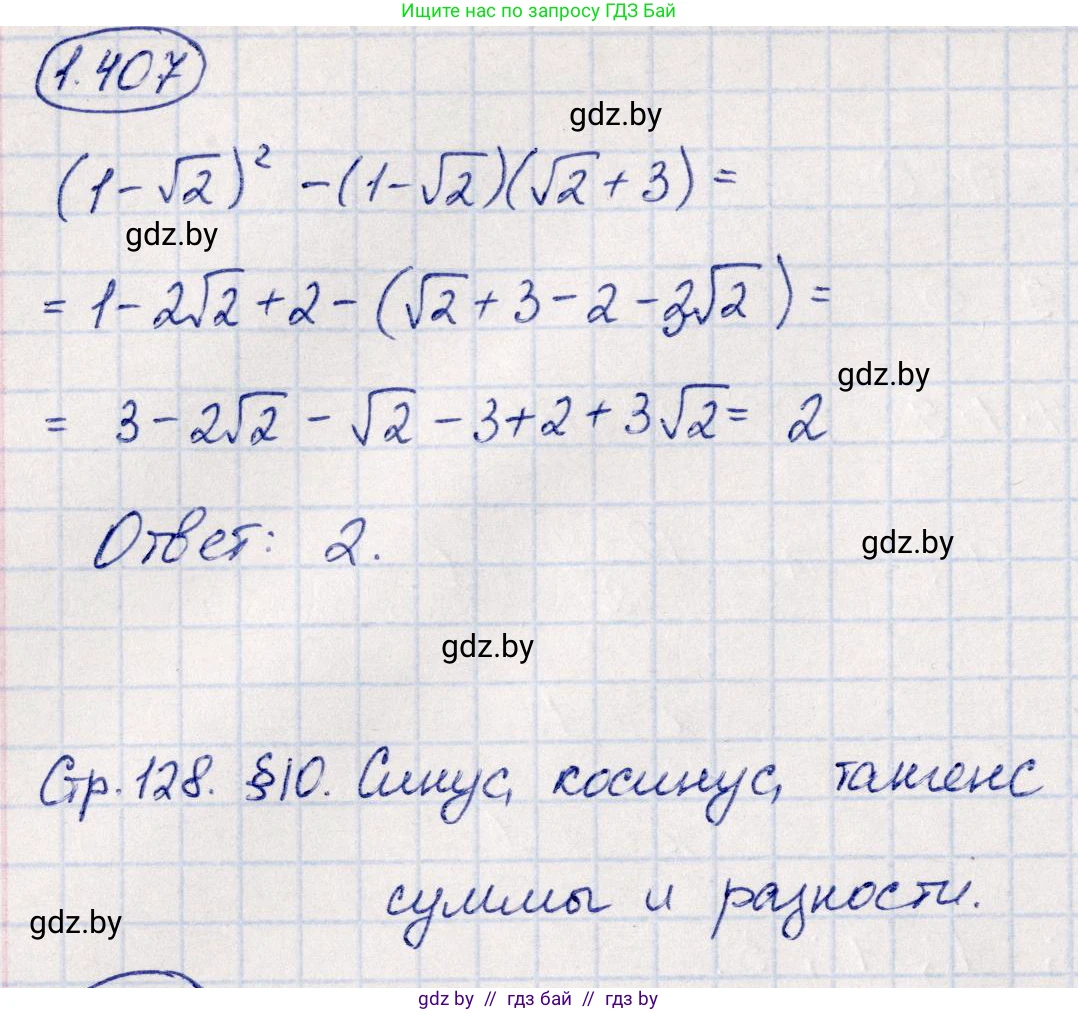 Ищите нас по запросу ГДЗ Бай
1.407
gdz.by
(1-√2)² -(1-√2)(√2+3)=
gdz.by
= 1-2√2+2-(√2+3-2-3√2)=
gdz.by
= 3-2√2-√2-3+2+3√2= 2
Ответ: 2.
gdz.by
gdz.by
Стр.128. §10. Синус, косинус, тангенс
суммы и разности.
gdz.by
gdz by // гдз бай // гдз by